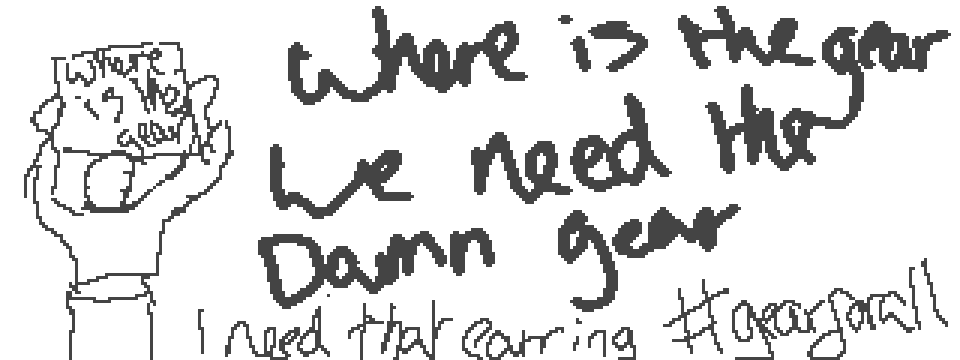 Where is the gear
Where is the gear
We need the
Damn gear
I need that earring #gearforall